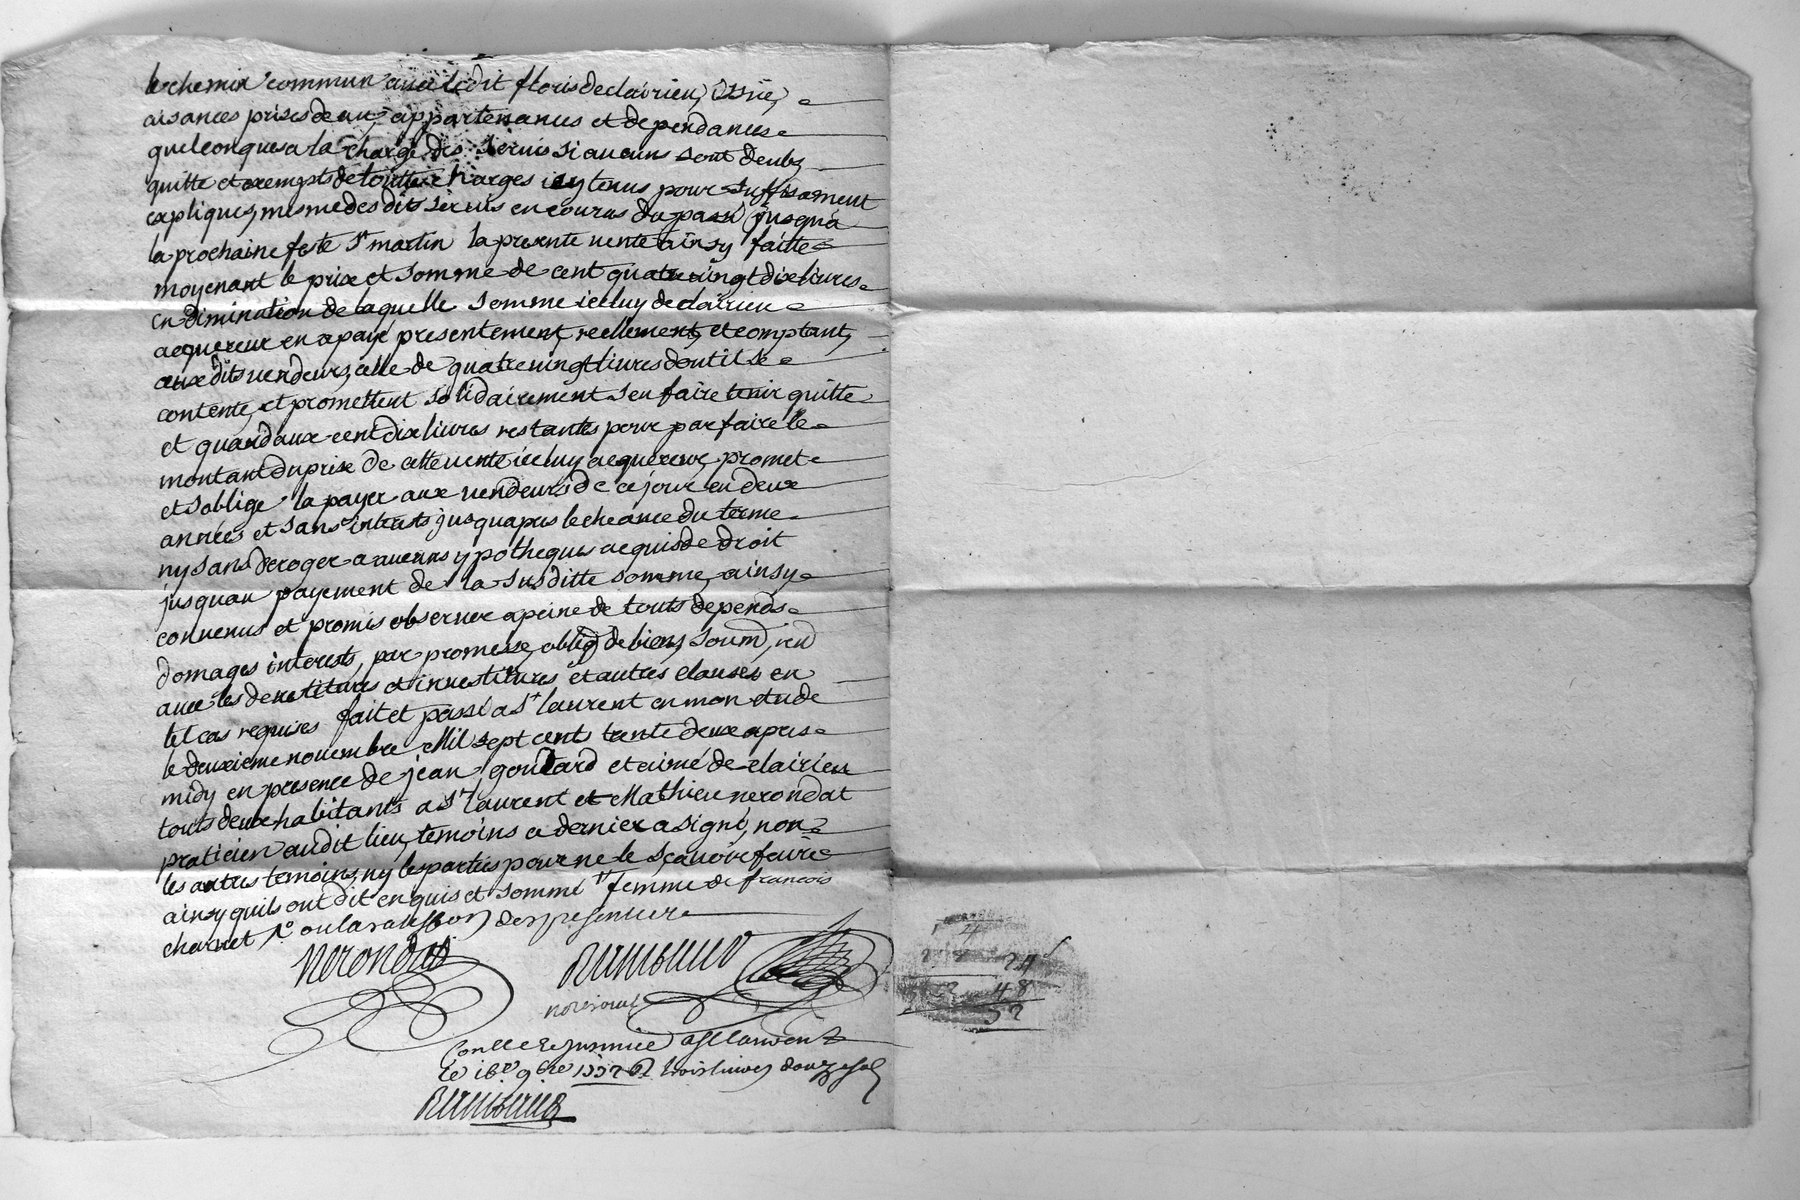 le chemin commun avec ledit floris declairieu,
aisances prises de aux, appartenances et dependances
quelconques a la charge des servis si aucuns sont deubz
quitte et exempts de toutte charges icy tenus pour suffisament
expliquez, mesme des dits servis en cours du passé jusqua
la prochaine feste st martin la presente vente ainsy faitte
moyenant le prix et somme de cent quatrevingt dix livres
en diminution de laquelle somme icelluy declairieu
acquereur en a payé presentement, reellement, et comptant,
aux dits vendeurs, celle de quatrevingt livres dont il se
contente, et promettent solidairement s'en faire tenir quitte
et quand aux cent dix livres restantes pour parfaire le
montant du prix de cette vente icelluy acquereur, promet
et soblige la payer aux vendeurs de ce jour en deux
années et sans interests jusquapres lecheance du terme
ny sans deroger a aucuns ypotheques acquis de droit
jusquau payement de la susditte somme, ainsy
convenus et promis observer a peine de touts depends
domages interests, par promesse, oblig de biens, soum, ren
avec les devetitures et investitures et autres clauses en
tel cas requises fait et passé a st laurent en mon etude
le deuxieme novembre Mil sept cents trente deux apres
midy en presence de jean goutard et aimé de clairieu
touts deux habitants a st laurent et Mathieu nerondat
praticien audit lieu, temoins ce dernier a signé, non
les autres temoins, ny les parties pour ne le sçavoir faire
ainsy quils ont dit enquis et sommé femme de francois
charvet
nerondat
Conllé
le 16e 9bre 1732 Rt trois livres douze sols
4
24
48